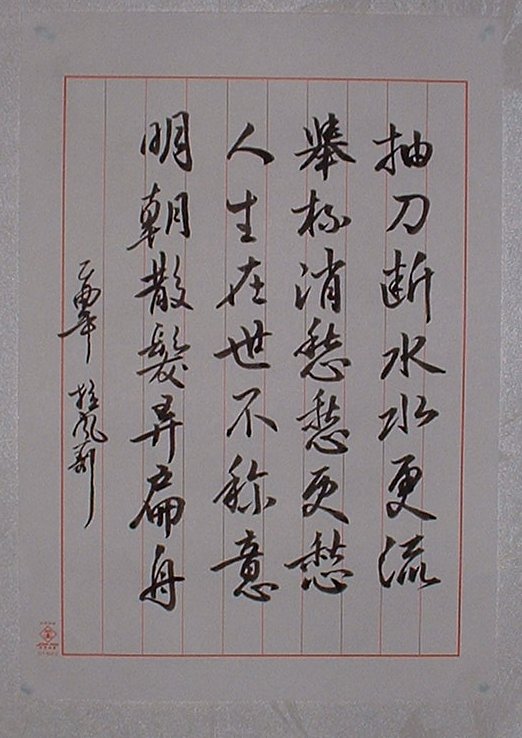 抽刀断水水更流
舉杯消愁愁更愁
人生在世不称意
明朝散髮弄扁舟
乙酉年